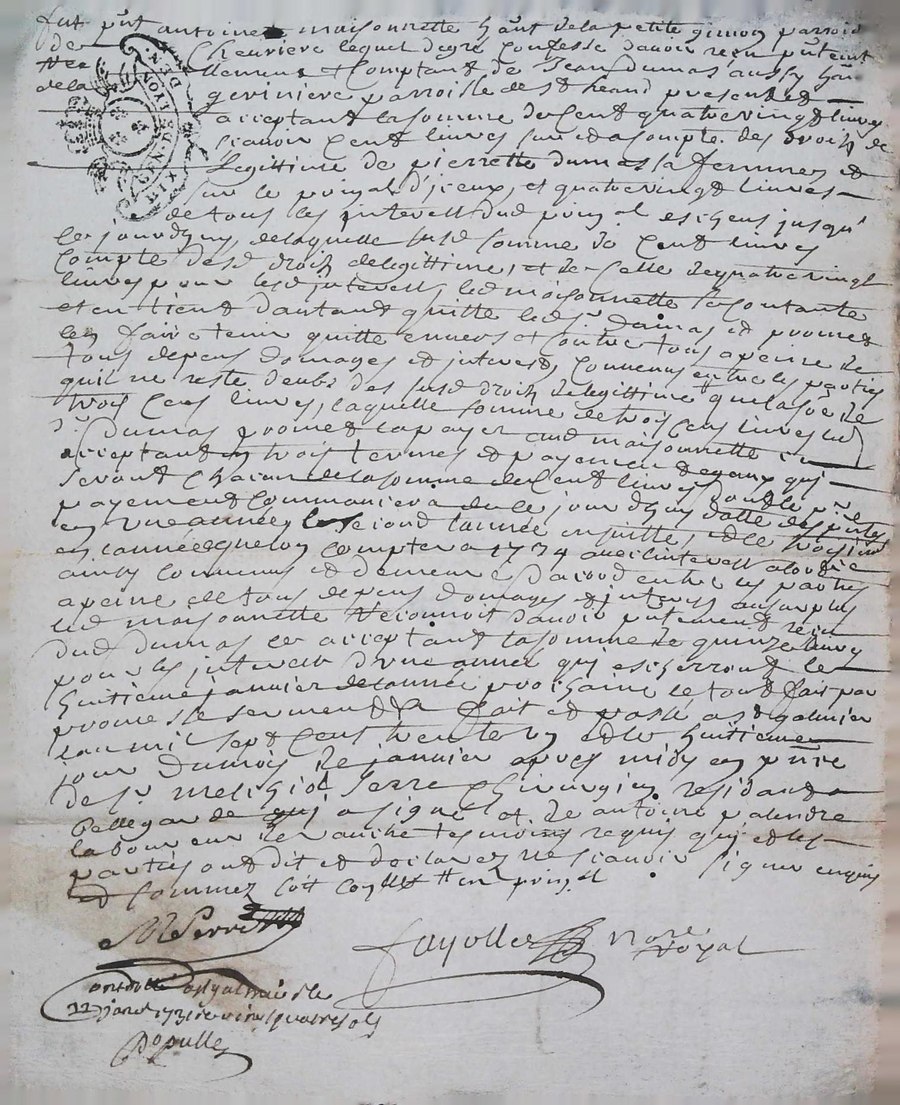 fut pnt antoine maisonnette hant de la petite gimon parroisse
de Chevriere lequel degre confesse davoir receu pntement
Reellement et Comptant de Jean Dumas aussy han
de la geriniere parroisse de st heand present et
acceptant la somme de Cent quatrevingt livres
scavoir Cent livres a compte des droits de
Legittime de pierrette dumas sa femme et
sur le prinpal d'iceux, et quatrevingt livres
de tous les interests dud prinpal escheus jusqu'
ce jourdhuy, de laquelle susd somme de Cent livres
compte desd droits de legittime, et de celle de quatrevingt
livres pour lesd interests, led maisonnette se contante
et en tient dautant quitte led sr Dumas et promet
len faire tenir quitte envers et contre tous apeine de
tous depens domages et interests, convenus entre les parties
quil ne reste deub des susd droits de legittime que la soe de
trois Cens livres, laquelle somme de trois Cens livres led
sr Dumas promet la payer aud maisonnette
acceptant en trois termes et payement egaux qui
seront Chacun de la somme de Cent livres dont le pre
payement commancera de ce jourdhuy datte des pntes
en une année, le second l'année ensuitte, et le troisieme
en l'année que lon comptera 1734 avec linterest
ainsy convenus et demeuré dacord entre les parties
apeine de tous depens domages et interests au surplus
led maisonnette Reconnoit davoir pntement receu
dud dumas ce acceptant la somme de quinze livres
pour les interests d'une année qui escherront le
huitieme janvier de lannée prochaine le tout fait par
promesse serment &a fait et passé a st galmier
lan mil sept Cens trente un et le huitieme
jour du mois de janvier apres midy en pnce
de sr melchior Serre Chirurgien residant a
Bellegarde qui a signé et de antoine
laboureur de tesmoins requis qui et les
parties ont dit et declarez ne scavoir signer enquis
et sommez soit
M Serre
fayolle nore Royal
controllé a st galmier le
11 janer 1731 Re vingt quatre sols
Populle